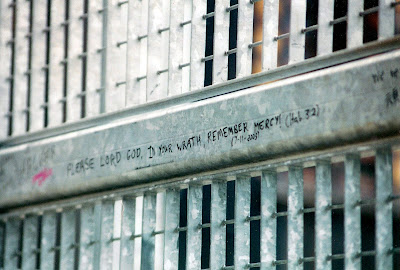 PLEASE LORD GOD, IN YOUR WRATH, REMEMBER MERCY! (Hab. 3:2)